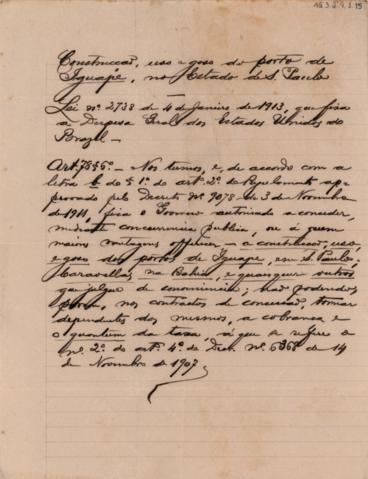 Construcção, uso e goso do porto de
Iguape, no Estado de S. Paulo
Lei nº 2738 de 4 de Janeiro de 1913, que fixa
a Despesa Geral dos Estados Unidos do
Brazil —
Art. 75 § 6º — Nos termos, e, de accordo com a
letra b do § 1º do art. 3º do Regulamento ap-
provado pelo Decreto nº 9078 de 3 de Novembro
de 1911, fica o Governo autorizado a conceder,
mediante concurrencia publica, ou a quem
maiores vantagens offerecer — a construcção, uso,
e goso dos portos de Iguape, em S. Paulo,
Caravellas, na Bahia, e quaesquer outros
que julgue de conveniencia; não podendo
porem, nos contractos de concessão, tornar
dependentes dos mesmos, a cobrança e
o quantum da taxa, á que se refere o
nº 2º do artº 4º do Decr. nº 6368 de 14
de Novembro de 1907